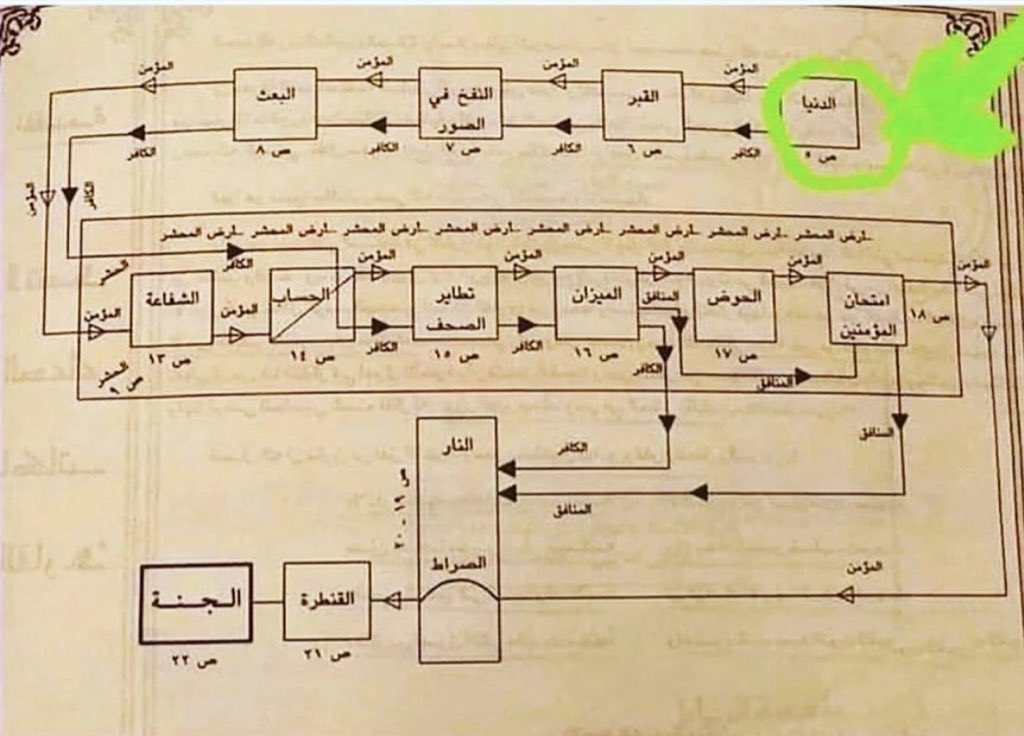 المؤمن
المؤمن
المؤمن
المؤمن
الدنيا
ص ٥
القبر
ص ٦
النفخ في
الصور
ص ٧
البعث
ص ٨
الكافر
الكافر
الكافر
الكافر
المؤمن
الكافر
ـأرض المحشر ـأرض المحشر ـأرض المحشر ـأرض المحشر ـأرض المحشر ـأرض المحشر ـأرض المحشر ـأرض المحشر
المحشر
الكافر
المؤمن
الشفاعة
ص ١٣
المؤمن
الحساب
ص ١٤
المؤمن
الكافر
تطاير
الصحف
ص ١٥
المؤمن
الكافر
الميزان
ص ١٦
المؤمن
المنافق
الكافر
الحوض
ص ١٧
المؤمن
المنافق
امتحان
المؤمنين
ص ١٨
المؤمن
المحشر
ص ٩
المنافق
النار
ص ١٩ - ٢٠
الكافر
المنافق
الصراط
المؤمن
القنطرة
ص ٢١
الجنة
ص ٢٢